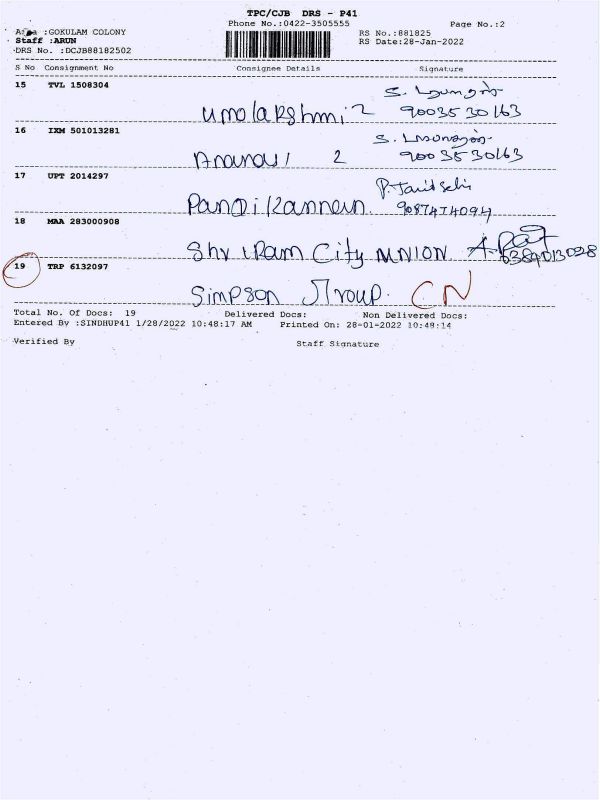 TPC/CJB DRS - P41
Phone No.:0422-3505555
Page No.:2
Area :GOKULAM COLONY
RS No.:881825
Staff :ARUN
RS Date:28-Jan-2022
DRS No. :DCJB88182502
S No Consignment No Consignee Details Signature
15 TVL 1508304
umalakshmi 2 9003530163
16 IXM 501013281
2 9003530163
17 UPT 2014297
Pandikannan 9087474094
18 MAA 283000908
Shriram City UNION 6384013028
19 TRP 6132097
Simpson Group. CN
Total No. Of Docs: 19 Delivered Docs: Non Delivered Docs:
Entered By :SINDHUP41 1/28/2022 10:48:17 AM Printed On: 28-01-2022 10:48:14
Verified By Staff Signature